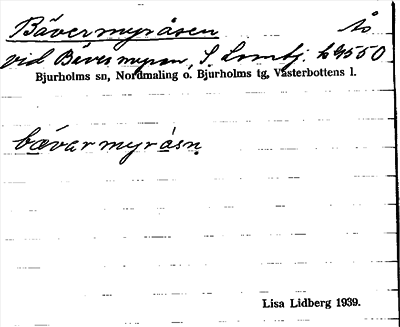 Bävermyråsen Ås
vid Bävermyran, S. Lombj. k 4550
Bjurholms sn, Nordmaling o. Bjurholms tg, Västerbottens l.
bævarmyråsn
Lisa Lidberg 1939.